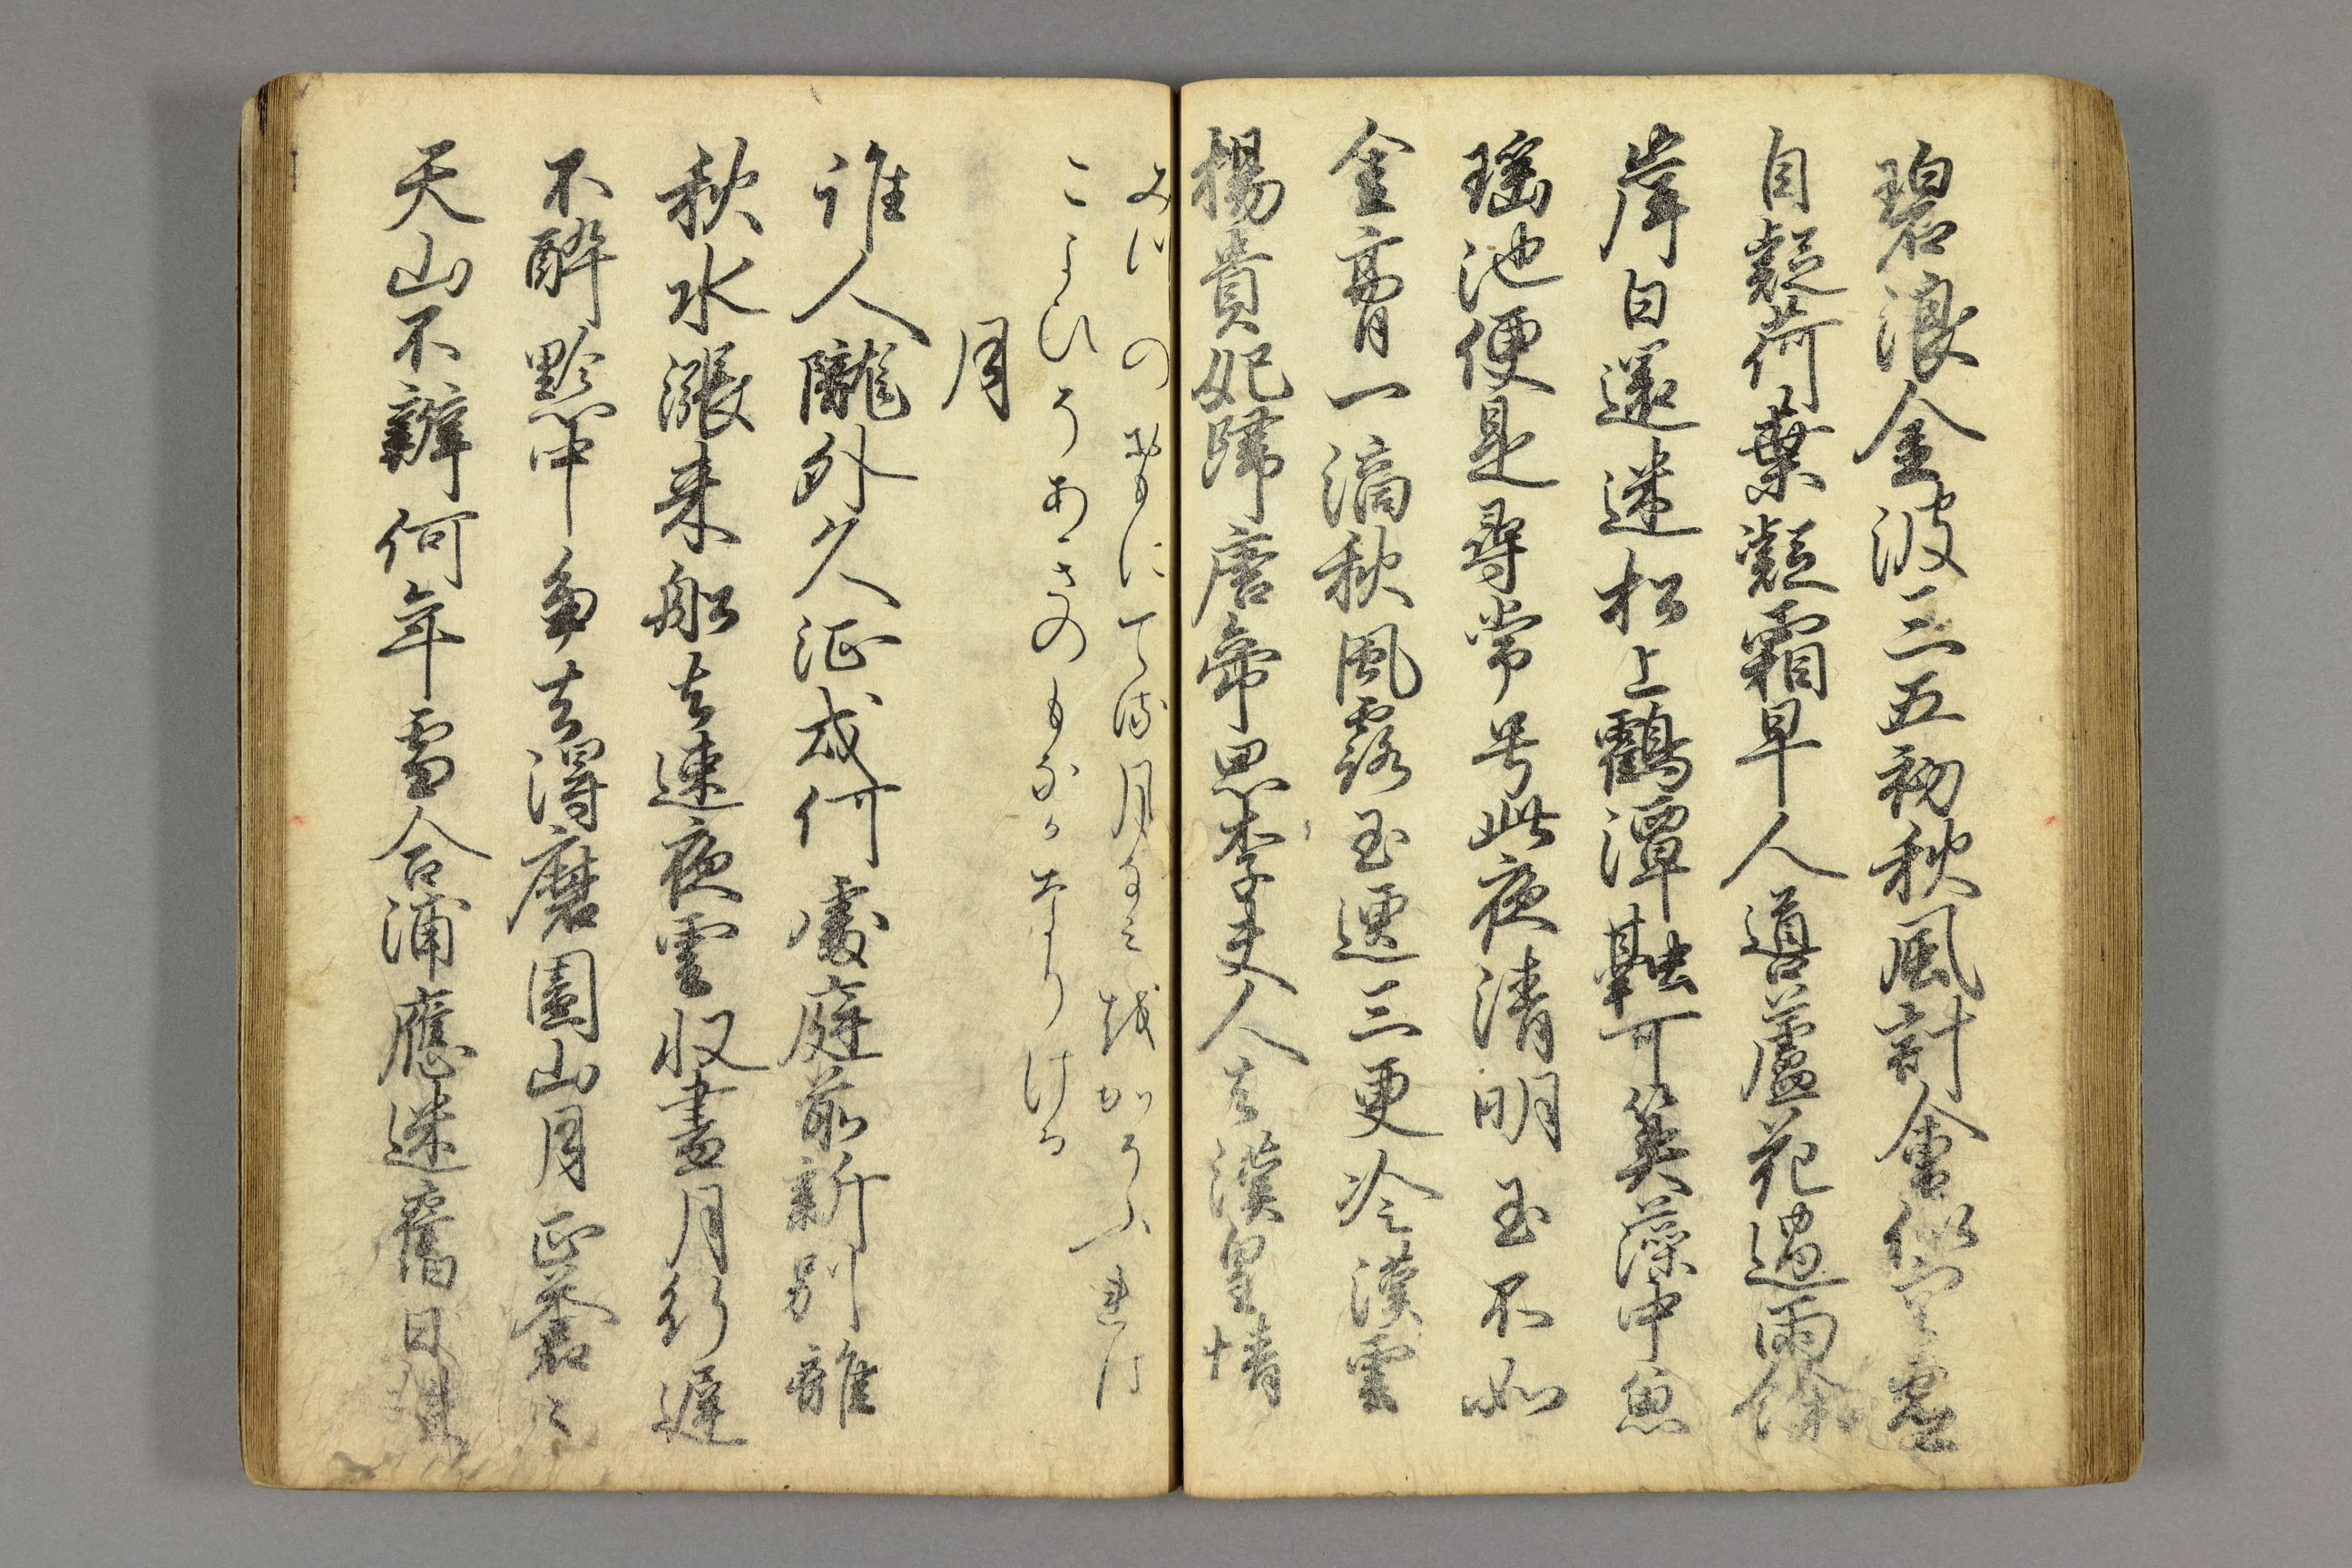 碧浪金波三五初秋風計會似空虚
自疑荷葉凝霜早人道蘆花遇雨餘
岸白還迷松上鶴潭融可筭藻中魚
瑶池便是尋常号此夜清明玉不如
金膏一滴秋風露玉遷三更冷漢雲
楊貴妃歸唐帝思李夫人去漢皇情
みつのおもにてる月なみをかそふれは
こよひそあきのもなかなりける
月
誰人隴外久征戎何處庭前新別離
秋水漲来船去速夜雲収盡月行遅
不酔黔中争去得磨圍山月正蒼〻
天山不辨何年雪合浦應迷舊日珠